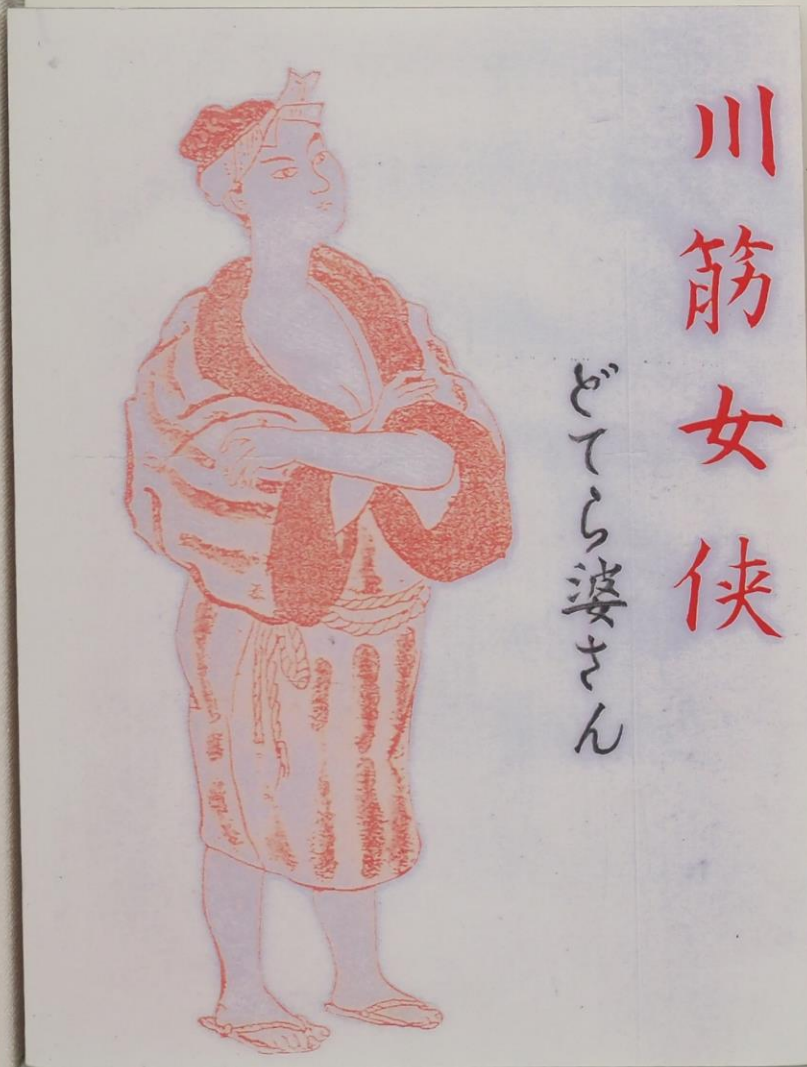 川筋女侠
どてら婆さん